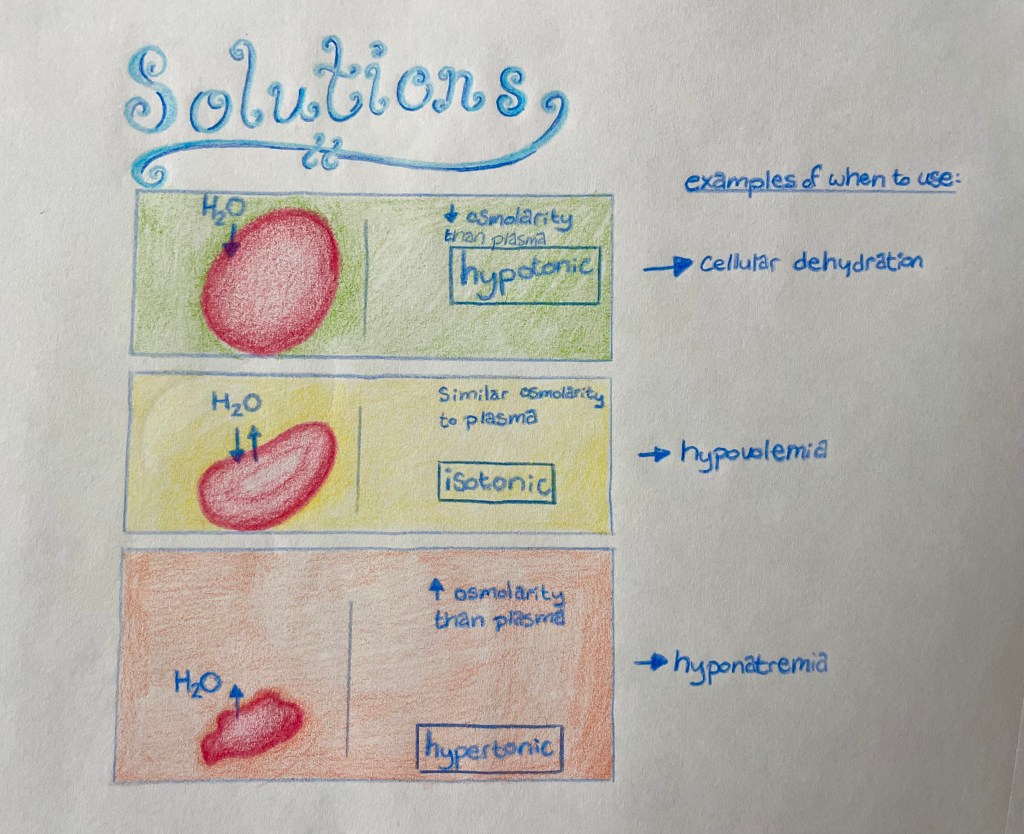 Solutions
examples of when to use:
H₂O
↓ osmolarity
than plasma
hypotonic
→ cellular dehydration
H₂O
Similar osmolarity
to plasma
isotonic
→ hypovolemia
↑ osmolarity
than plasma
H₂O
hypertonic
→ hyponatremia